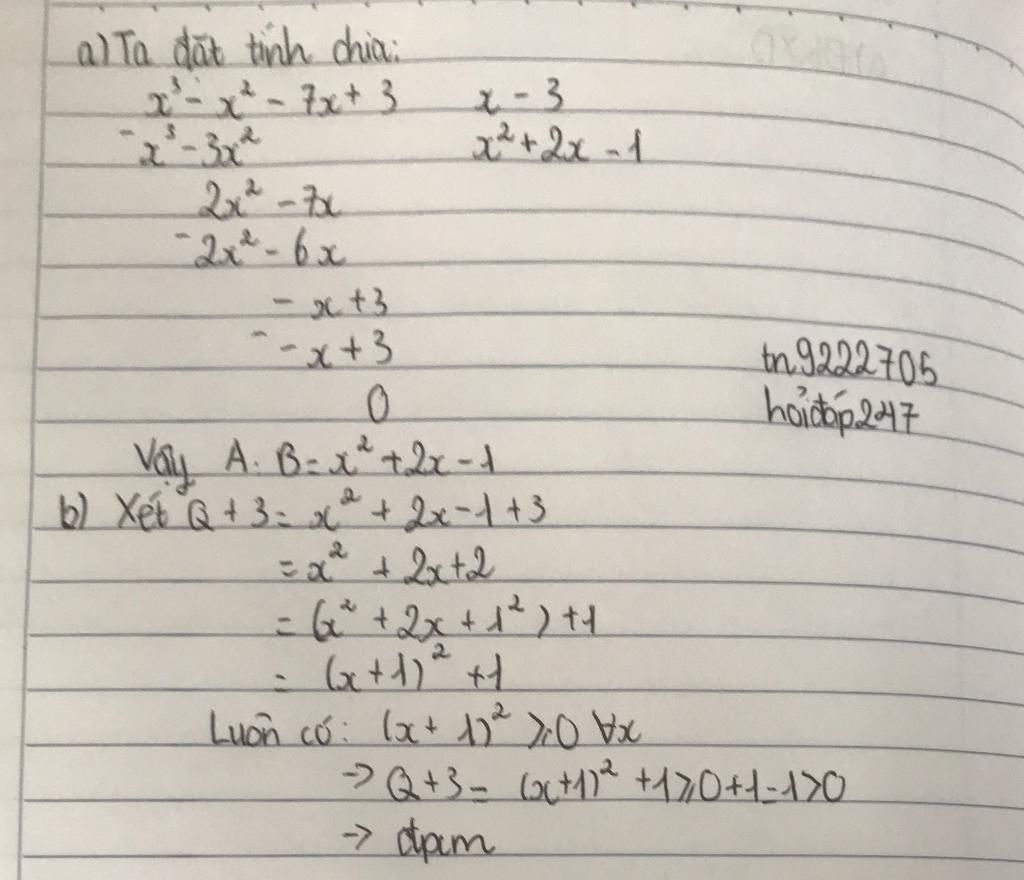 a) Ta đặt tính chia:
x³ - x² - 7x + 3 x - 3
- x³ - 3x² x² + 2x - 1
2x² - 7x
- 2x² - 6x
- x + 3
- - x + 3
tn9222705
0 hỏiđáp247
Vậy A : B = x² + 2x - 1
b) Xét Q + 3 = x² + 2x - 1 + 3
= x² + 2x + 2
= (x² + 2x + 1²) + 1
= (x + 1)² + 1
Luôn có: (x + 1)² ⩾ 0 ∀x
-> Q + 3 = (x+1)² + 1 ⩾ 0 + 1 = 1 > 0
-> đpcm